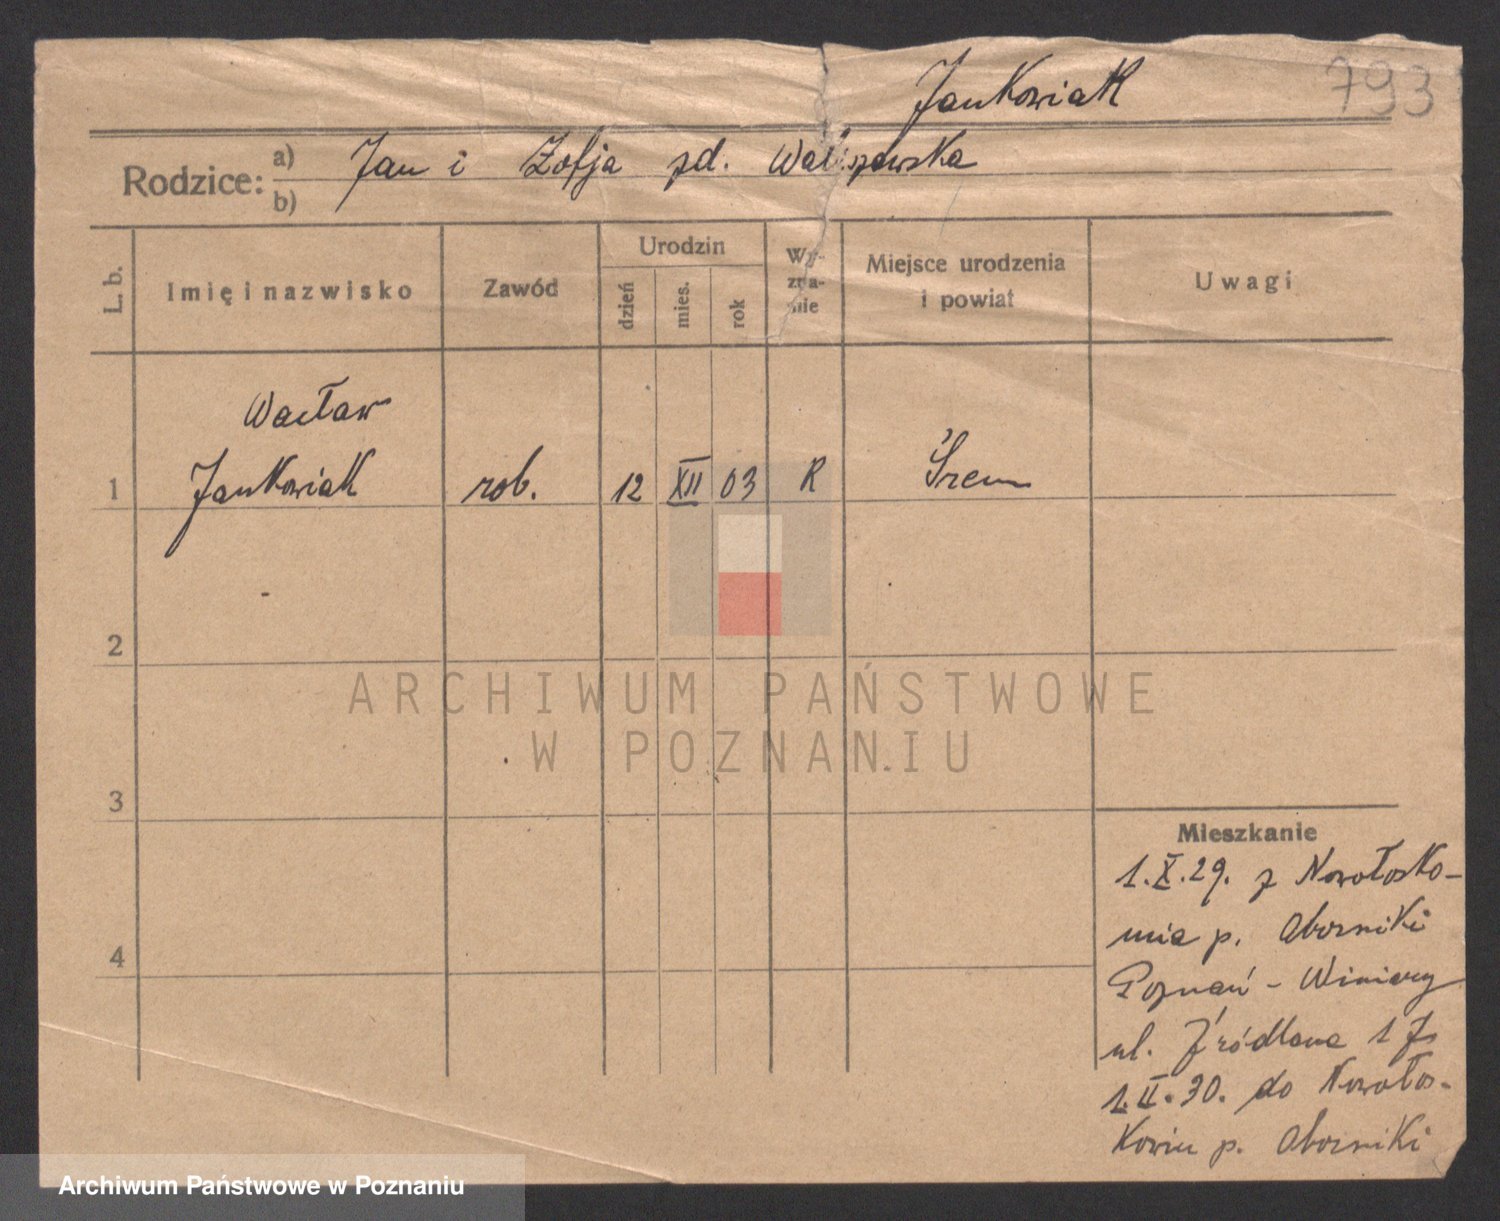 Jankowiak 793
Rodzice: a) Jan i Zofja zd. Waliszewska
b)
L. b. Imię i nazwisko Zawód Urodzin dzień mies. rok Wy-zna-nie Miejsce urodzenia i powiat Uwagi
Wacław
1 Jankowiak rob. 12 XII 03 R Śrem
2
ARCHIWUM PAŃSTWOWE
W POZNANIU
3
Mieszkanie
1.X.29. z Nowołosko-
nia p. Oborniki
4
Poznań - Winiary
ul. Źródlana 1
1.II.30. do Nowołos-
p. Oborniki
Archiwum Państwowe w Poznaniu